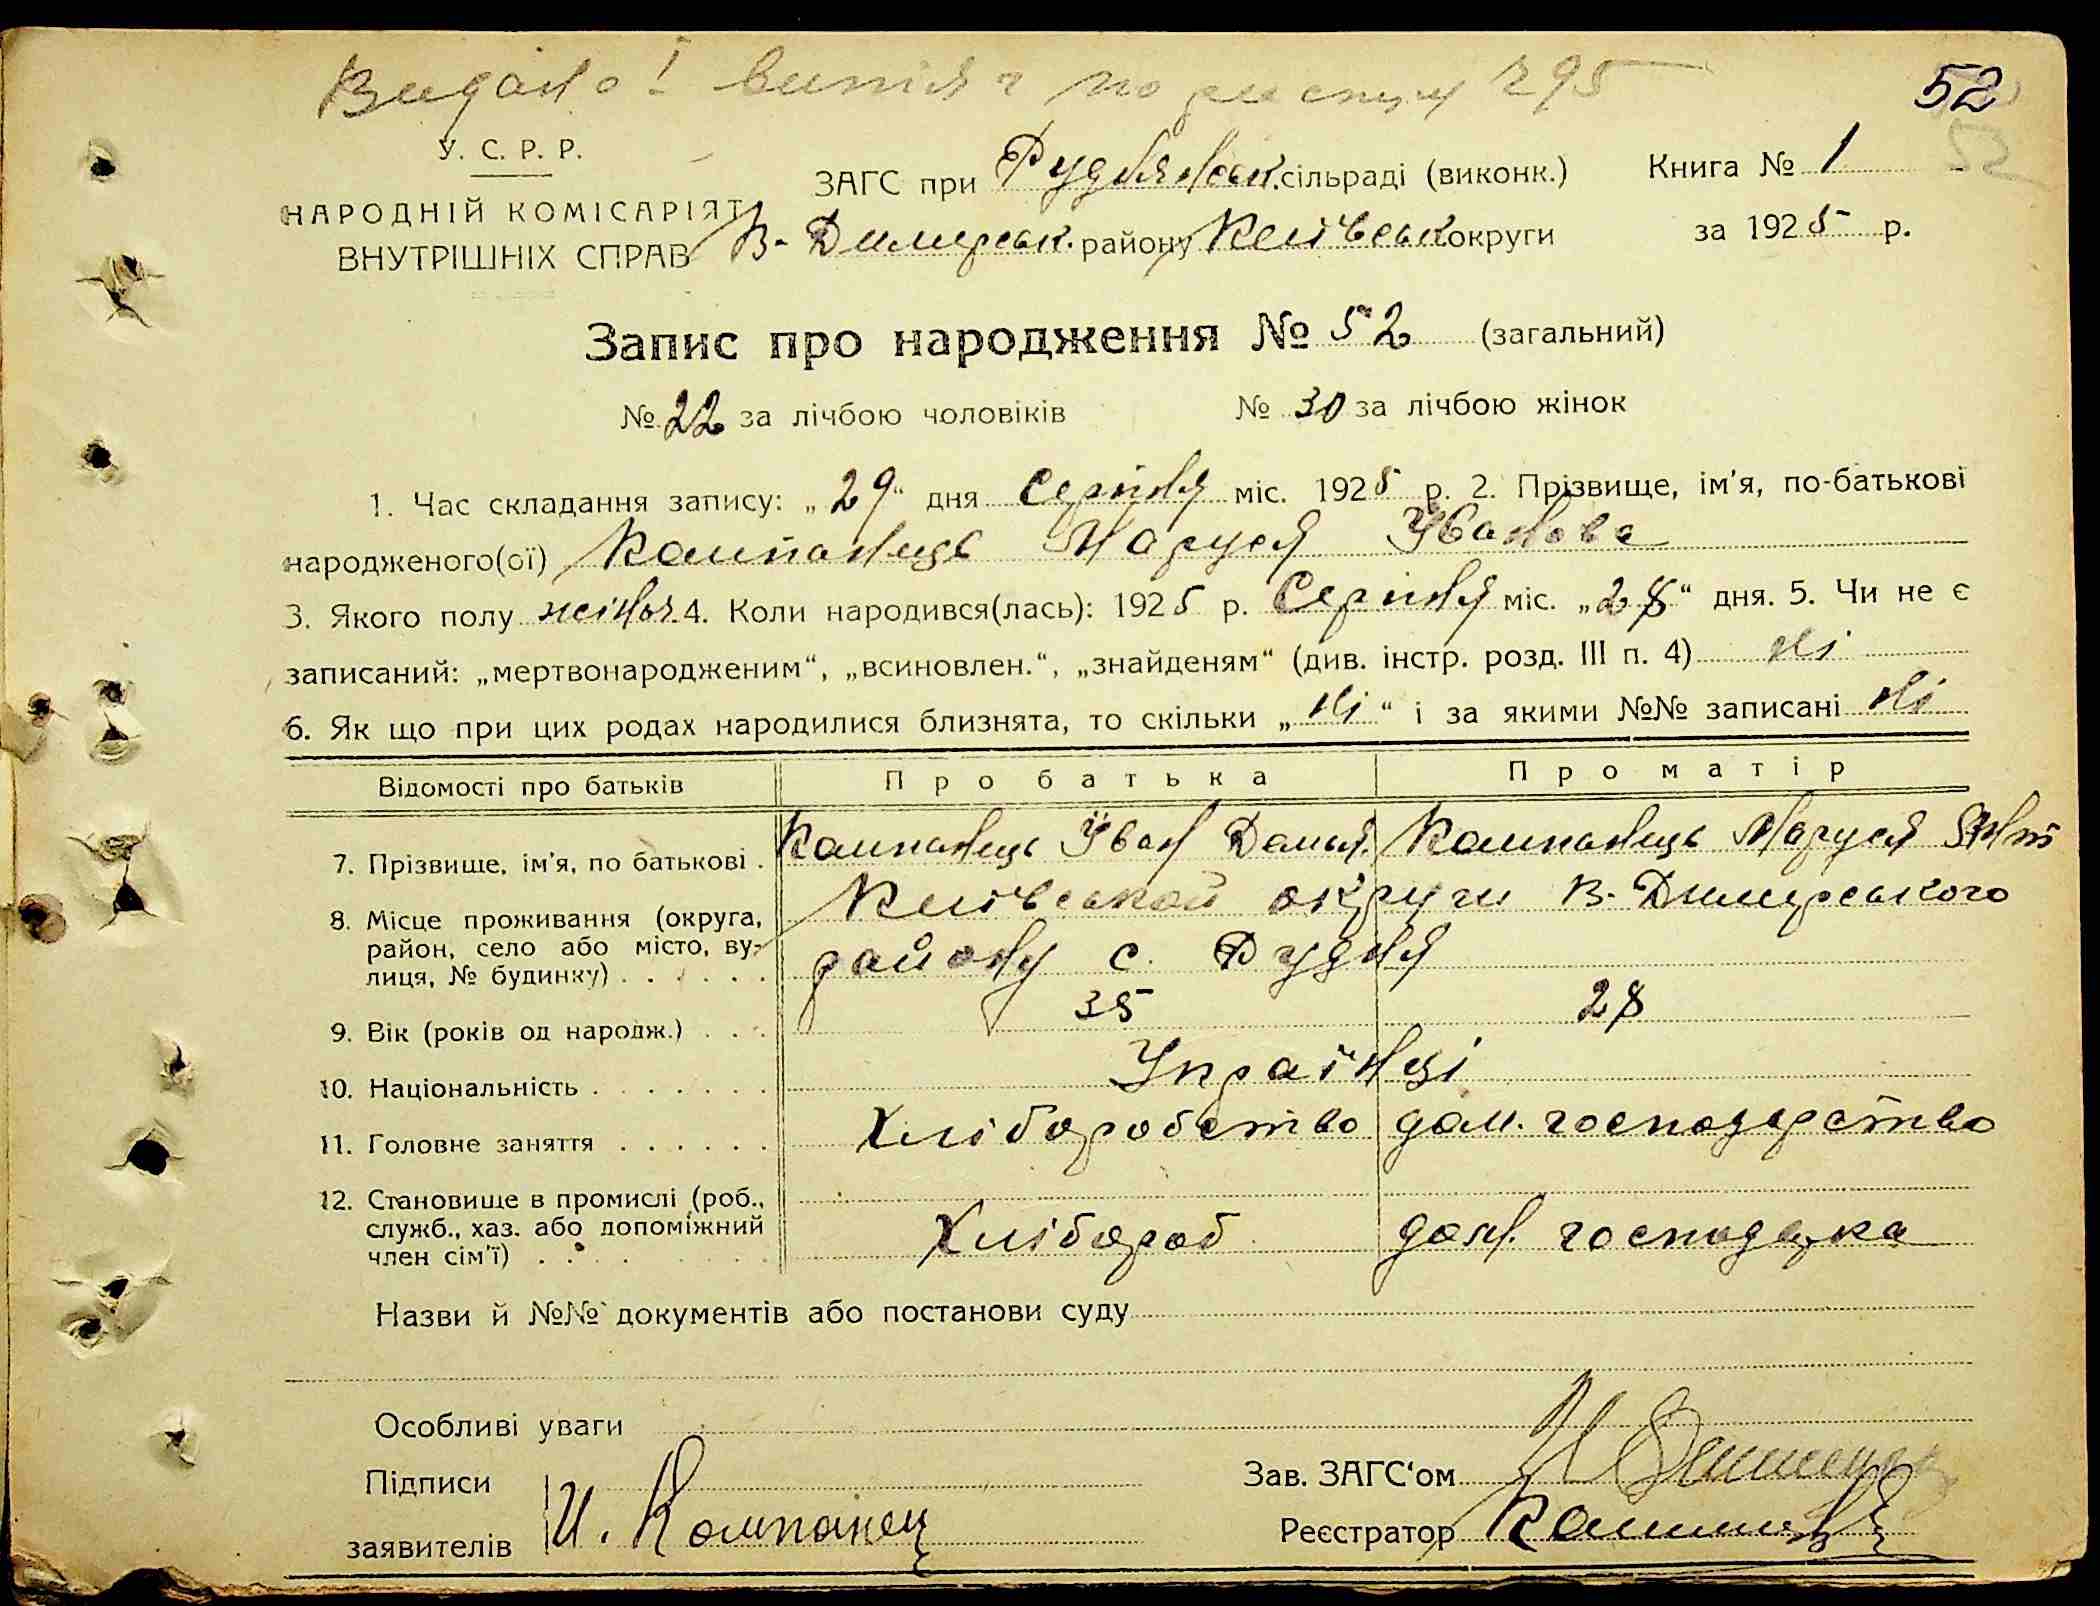 Видано! витяг по 295
52
52
У. С. Р. Р.
НАРОДНІЙ КОМІСАРІЯТ
ВНУТРІШНІХ СПРАВ
ЗАГС при Руднянськ. сільраді (виконк.)
В-Димерськ. району Київськ округи
Книга № 1
за 1925 р.
Запис про народження № 52 (загальний)
№ 22 за лічбою чоловіків № 30 за лічбою жінок
1. Час складання запису: „29“ дня Серпня міс. 1925 р. 2. Прізвище, ім'я, по-батькові
народженого(ої) Компанець Маруся Іванова
3. Якого полу жіноч. 4. Коли народився(лась): 1925 р. Серпня міс. „28“ дня. 5. Чи не є
записаний: „мертвонародженим“, „всиновлен.“, „знайденям“ (див. інстр. розд. III п. 4) Ні
6. Як що при цих родах народилися близнята, то скільки „Ні“ і за якими №№ записані Ні
Відомості про батьків Про батька Про матір
7. Прізвище, ім'я, по батькові . Компанець Іван Демья. Компанець Маруся Ант
8. Місце проживання (округа, Київськой округи В-Димерського
район, село або місто, ву-
лиця, № будинку) . . . . . . району с. Рудня
9. Вік (років од народж.) . . . 35 28
10. Національність . . . . . . . Українці
11. Головне заняття . . . . . . Хліборобство дом. господарство
12. Становище в промислі (роб.,
служб., хаз. або допоміжний Хлібороб дом. господарка
член сім'ї) . . .
Назви й №№ документів або постанови суду
Особливі уваги
Підписи Зав. ЗАГС‘ом
заявителів И. Компанец Реєстратор